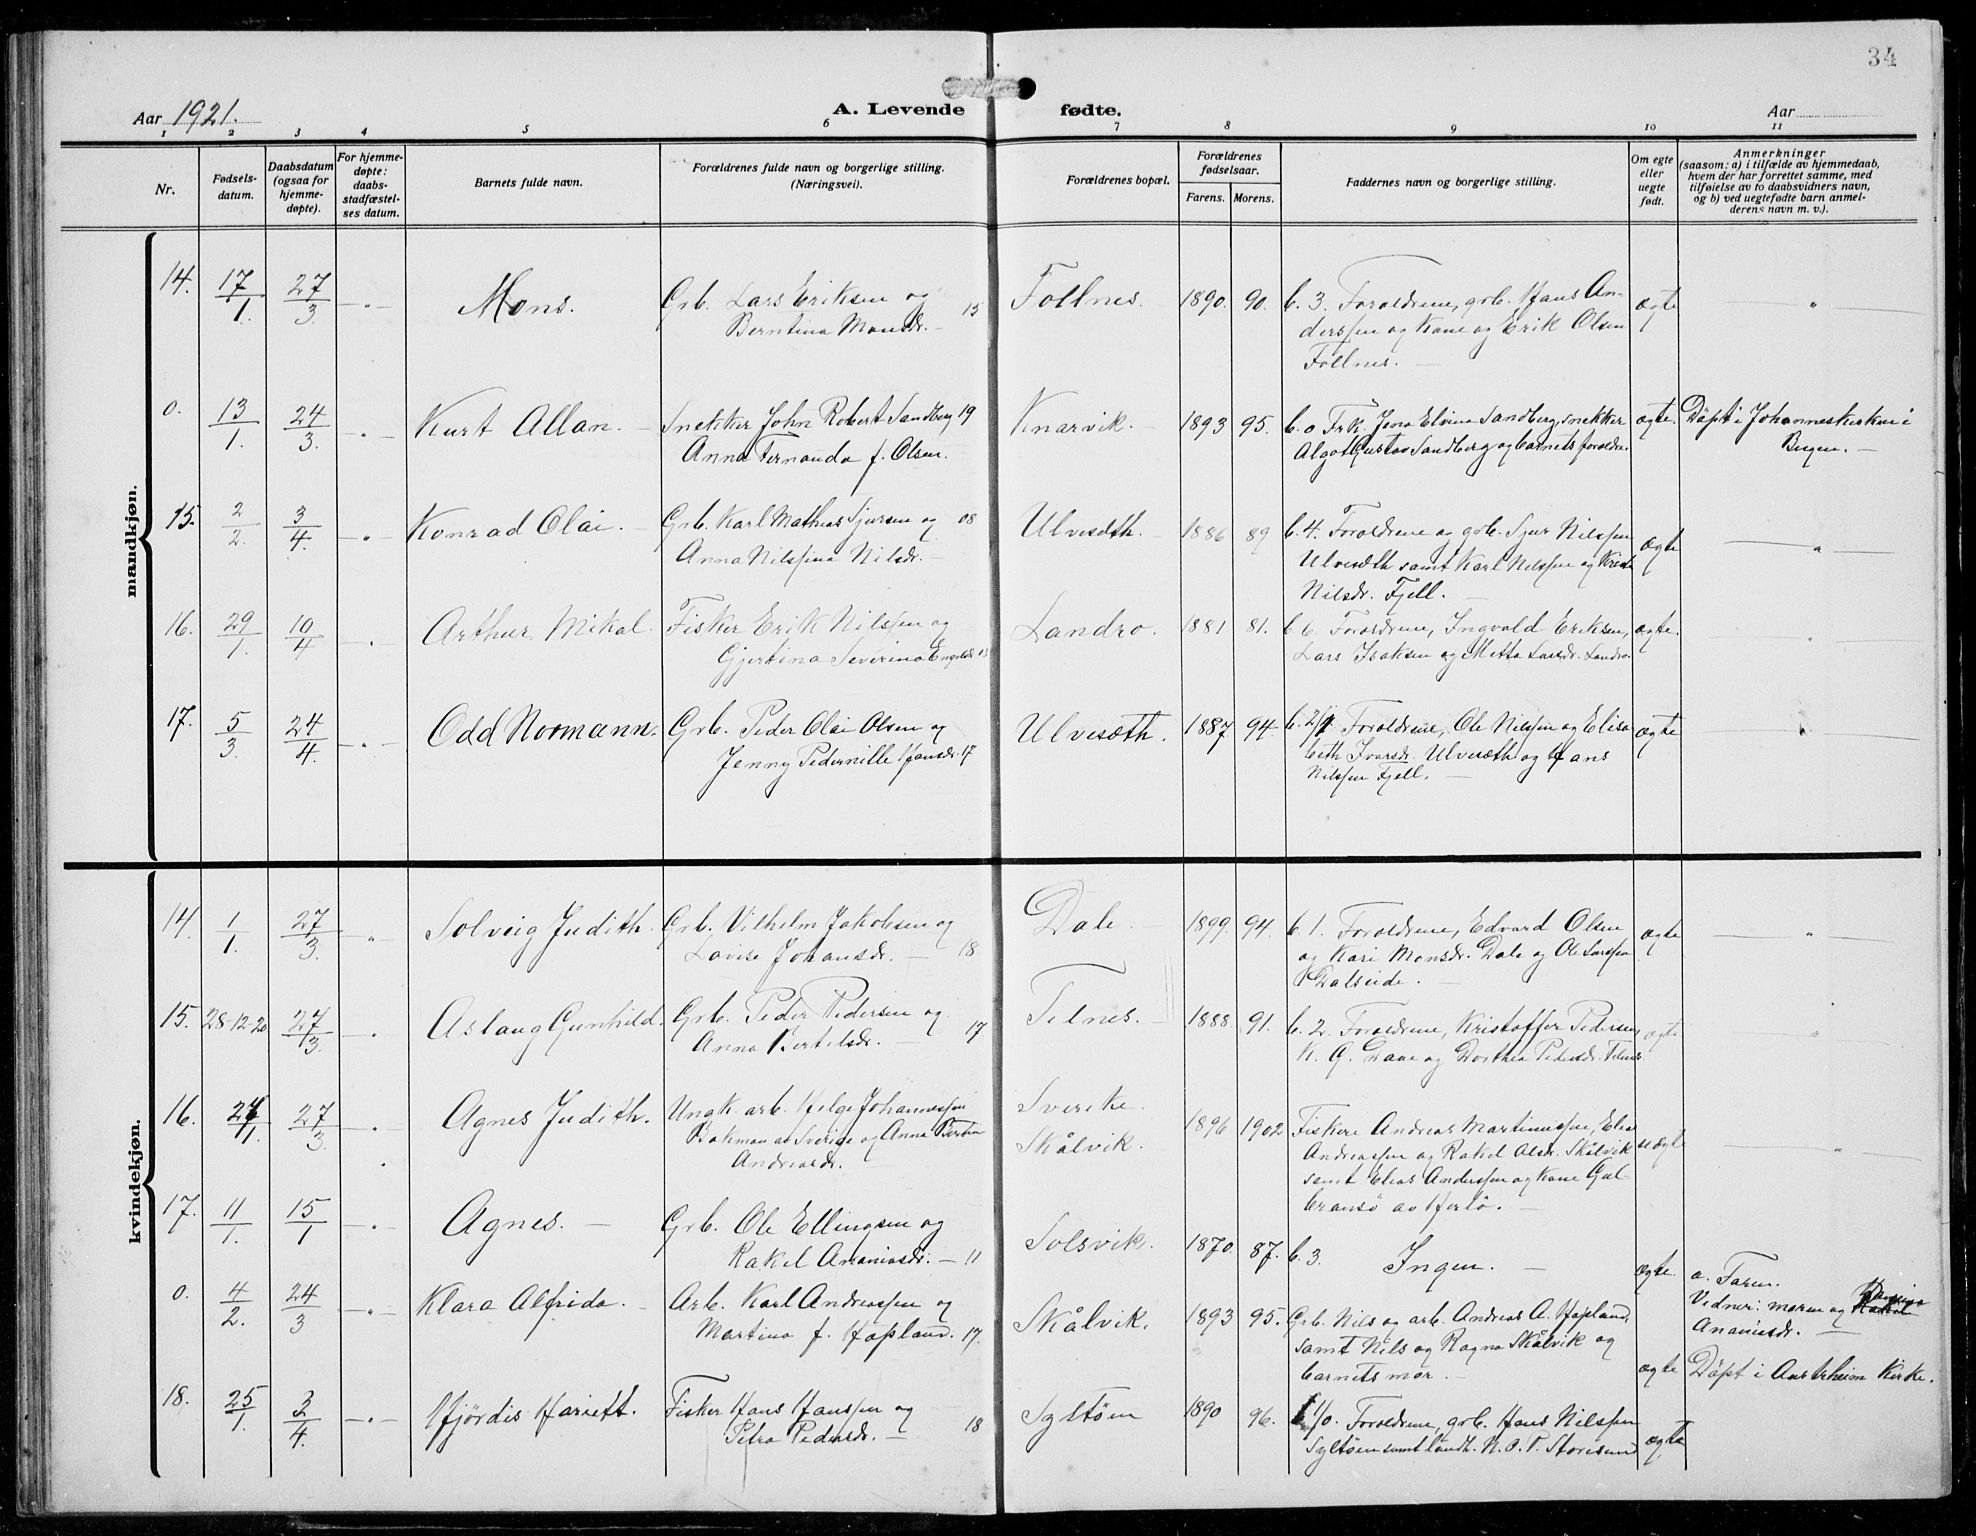 34
Aar 1921.
A. Levende fødte.
Aar
1 2 3 4 5 6 7 8 9 10 11
Nr.
Fødsels-
datum.
Daabsdatum
(ogsaa for
hjemme-
døpte).
For hjemme-
døpte:
daabs-
stadfæstel-
ses datum.
Barnets fulde navn.
Forældrenes fulde navn og borgerlige stilling.
(Næringsvei).
Forældrenes bopæl.
Forældrenes
fødselsaar.
Farens. Morens.
Faddernes navn og borgerlige stilling.
Om egte
eller
uegte
født.
Anmerkninger
(saasom: a) i tilfælde av hjemmedaab,
hvem der har forrettet samme, med
tilføielse av to daabsvidners navn,
og b) ved uegtefødte barn anmel-
derens navn m. v.).
mandkjøn.
14. 17/1. 27/3. -"- Mons. Grb. Lars Eriksen og
Berntina Monsdr. - 15
Follnes. 1890. 90. b. 3. Forældrene, grb. Hans An-
derssen og Kone og Erik Olsen
Follnes. -
ægte "
0. 13/1. 24/3. -"- Kurt Allan. - Snekker John Robert Sandberg 19
Anna Fernanda f. Olsen.
Knarvik. - 1893 95. b. 0 Frk. Jena Elvina Sandberg, snekker
Algot Gustav Sandberg og barnets forældre.
ægte. Døpt i Johanneskirken i
Bergen. -
15. 2/2. 3/4. -"- Konrad Olai. - Grb. Karl Mathias Sjursen og 08
Anna Nilssina Nilsdr. -
Ulvesæth. 1886 89 b. 4. Forældrene og grb. Sjur Nilssen
Ulvesæth samt Karl Nilssen og
Nilsdr. Fjell. -
ægte "
16. 29/1. 10/4 " Arthur Mikal. Fisker Erik Nilssen og
Gjertina Severina 
Landro. 1881 81. b. 6. Forældrene, Ingvald Eriksen,
Lars Isaksen og Metta Larsdr. Landro.
ægte. "
17. 5/3. 24/4. -"- Odd Normann. Grb. Peder Olai Olsen og
Jenny Pedernille Hansdr. 17
Ulvesæth. 1887 94 b. 2/1. Forældrene, Ole Nilssen og Elisa-
beth Ivarsdr. Ulvesæth og Hans
Nilssen Fjell. -
ægte
kvindekjøn.
14. 1/1. 27/3. " Solveig Judith. Grb. Vilhelm Jakobsen og
Lovise Johansdr. - 18
Dale. - 1899. 94. b. 1. Forældrene, Edvard Olsen
og Kari Monsdr. Dale og Ole Larssen
Dalseide. -
ægte "
15. 28-12-20 27/3. " Aslaug Gunhild. Grb. Peder Pedersen og
Anna Bertelsdr. 17
Telnes. - 1888. 91. b. 2. Forældrene, Kristoffer Pedersen,
K. G. Dane og Dorthea Pedersdr. Telnes
ægte "
16. 27/3. " Agnes Judith. Ungk. arb. Helge Johannessen
Bokman av Sverige og Anna Bertin
Andreasdr. -
Sverike.
Skålvik.
1896 1902 Fiskere Andreas Martinussen, Elias
Andreassen og Rakel Olsdr. Skålvik
samt Elias Anderssen og Kone Gul-
bransö av Herlö. -
uægte "
17. 11/1. 15/1 -"- Agnes. - Grb. Ole Ellingsen og
Rakel Ananiasdr. - 11
Solsvik. 1870. 87. b. 3 Ingen. -
ægte. a. Faren.
Vidner: moren og
Ananiasdr. -
0. 4/2. 24/3 -"- Klara Alfrida. - Arb. Karl Andreassen og
Martina f. Hopland. 17.
Skålvik. 1893 95. Grb. Nils og arb. Andreas A. Hopland,
samt Nils og Ragna Skålvik og
barnets mor. -
ægte Døpt i Austrheim Kirke.
18. 25/1. 3/4. -"- Hjördis Hariett. Fisker Hans Hanssen og
Petra Pedersdr. - 18
Syltöen 1890 96. b. 1/0. Forældrene, grb. Hans Nilssen
Syltöen samt landh. N. O. P. Storesund
ægte